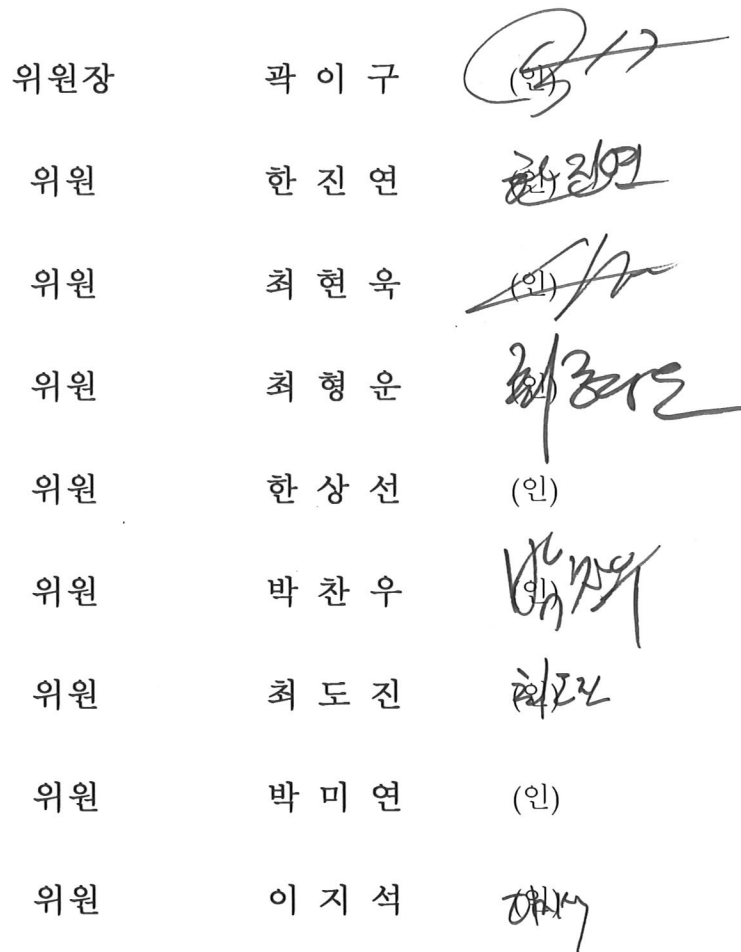 위원장 곽 이 구 (인)
위원 한 진 연 (인) 한진연
위원 최 현 욱 (인)
위원 최 형 운 (인)
위원 한 상 선 (인)
위원 박 찬 우 (인) 박찬우
위원 최 도 진 (인) 최도진
위원 박 미 연 (인)
위원 이 지 석 (인)